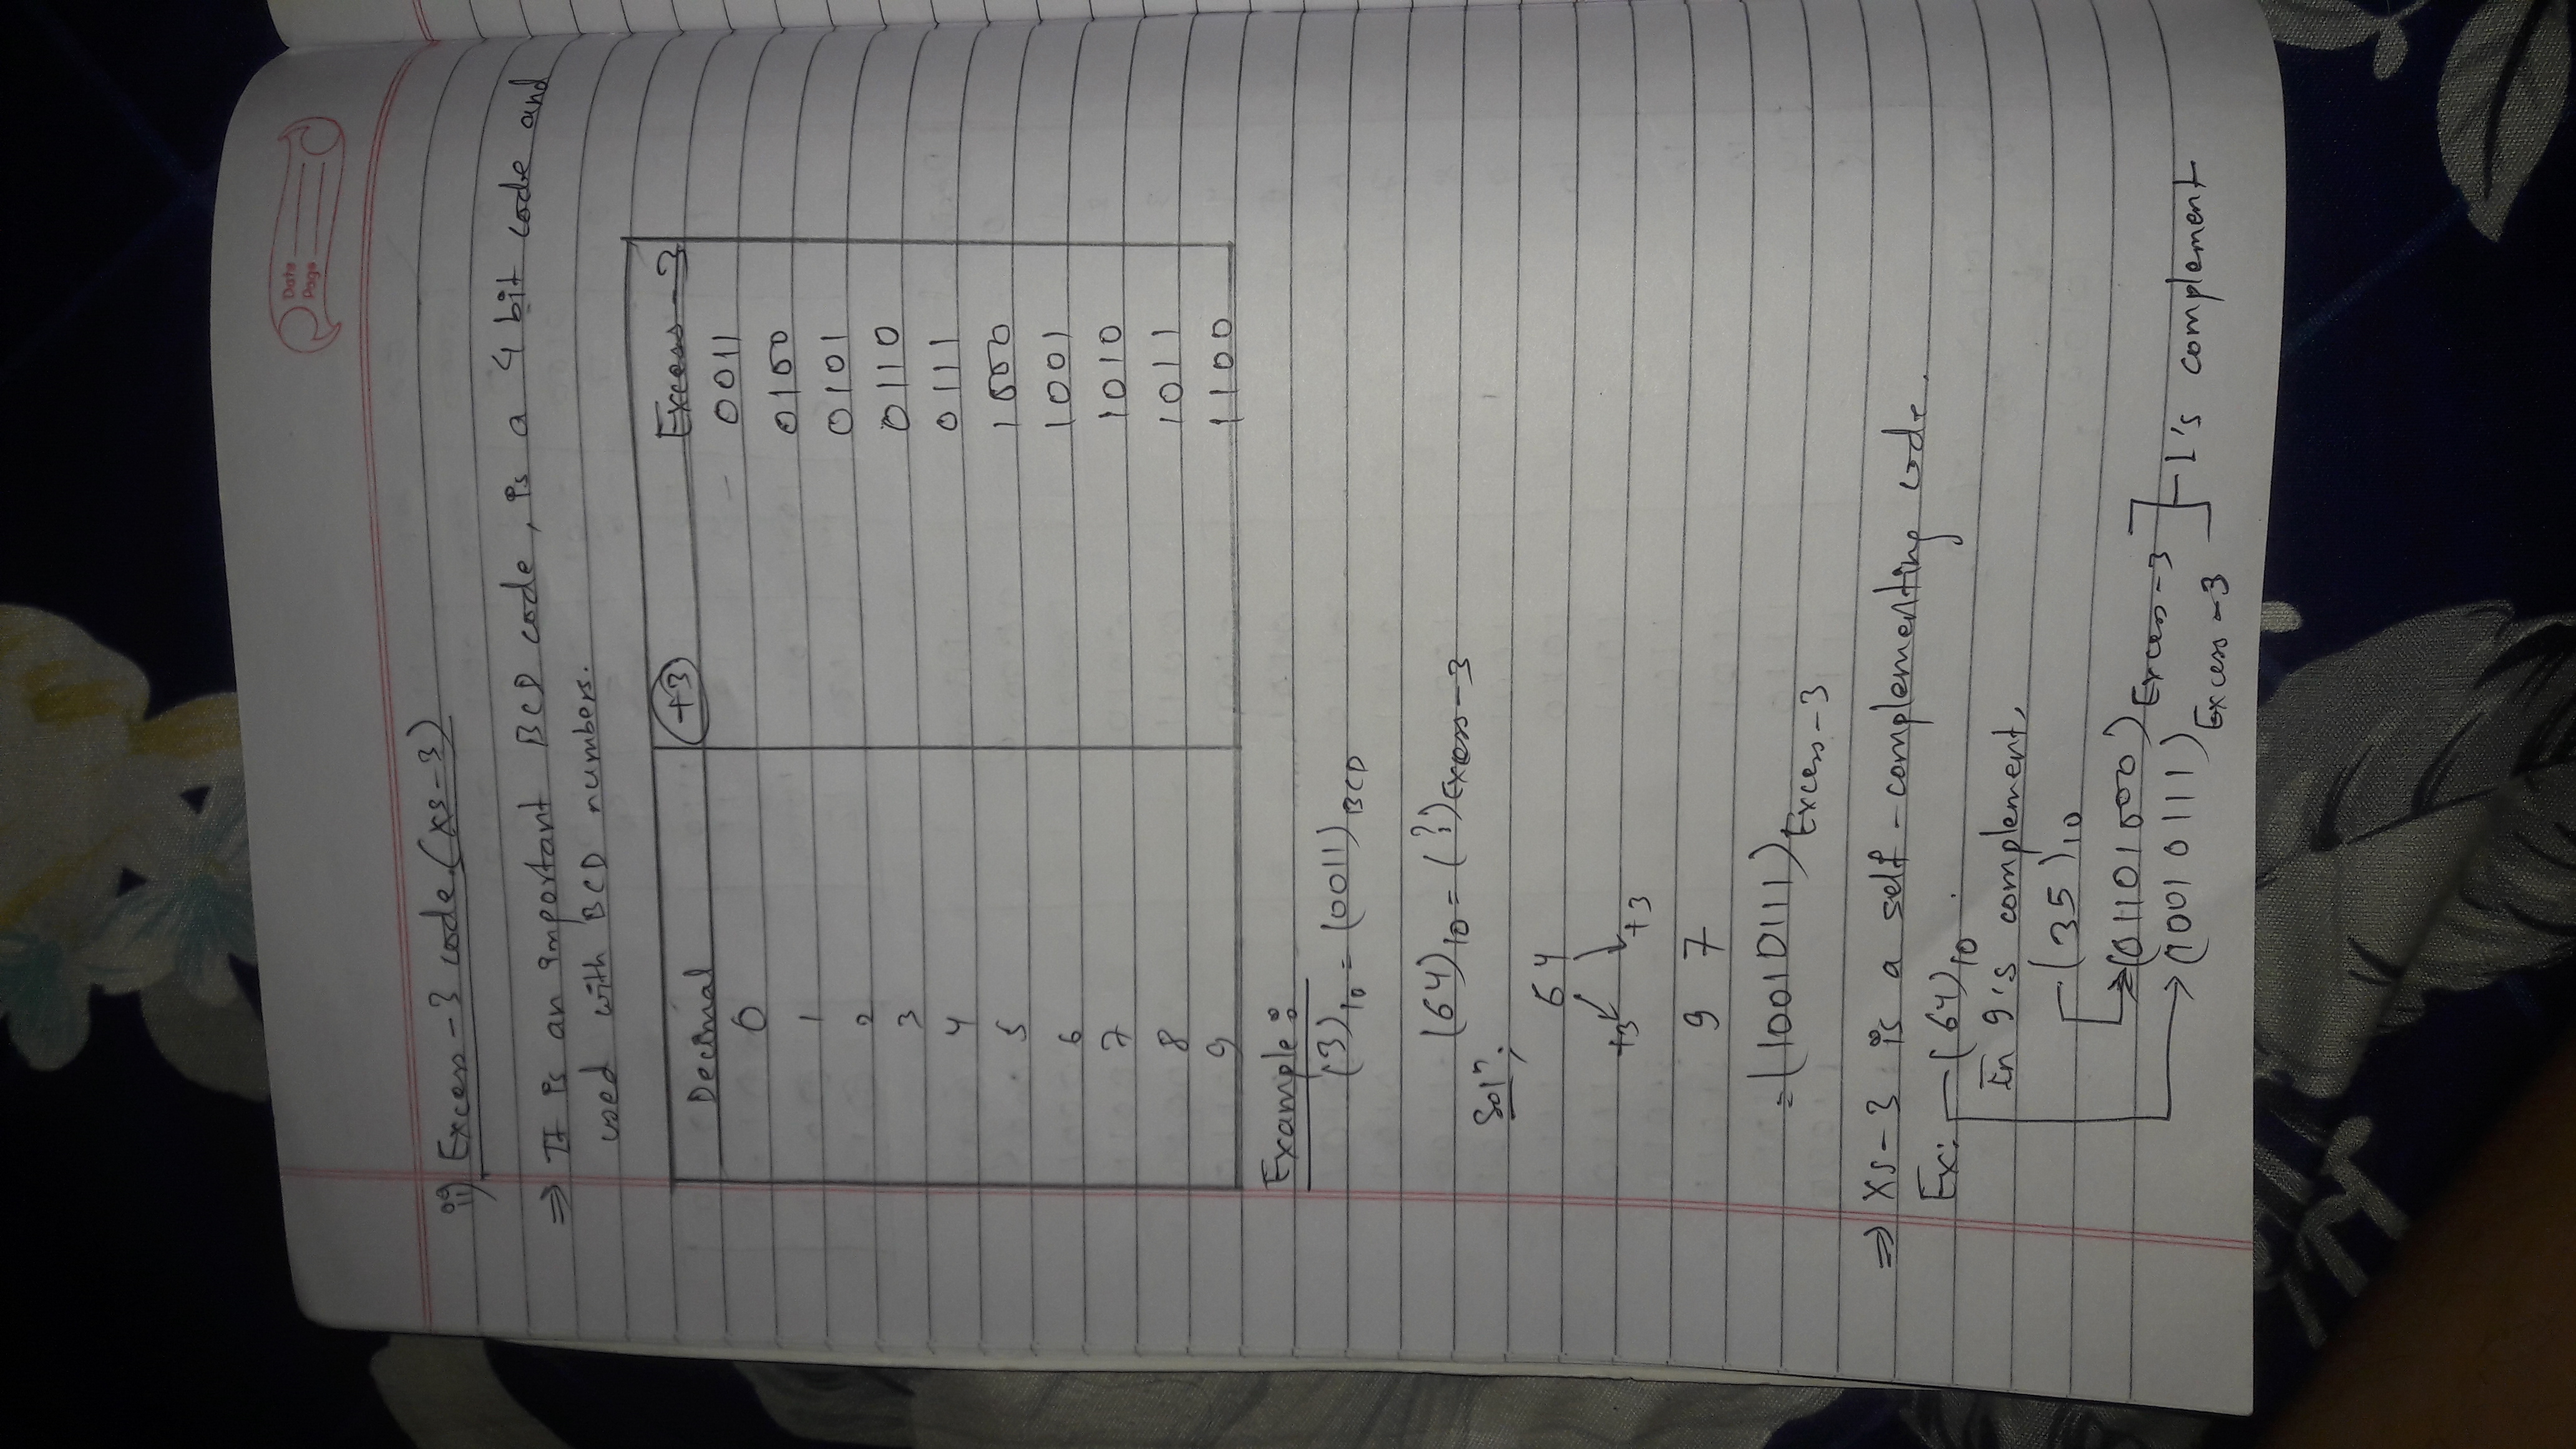 Date
Page
ii) Excess-3 code (XS-3)
⇒ It is an important BCD code, is a 4 bit code and
used with BCD numbers.
Decimal +3 Excess-3
0 0011
1 0100
2 0101
3 0110
4 0111
5 1000
6 1001
7 1010
8 1011
9 1100
Example:
(3)10 = (0011)BCD
(64)10 = (?)Excess-3
Solⁿ;
64
+3 +3
9 7
=(10010111)Excess-3
⇒ XS-3 is a self-complementing code.
Ex: (64)10
In 9's complement,
(35)10
(01101000)Excess-3
(10010111)Excess-3 1's complement